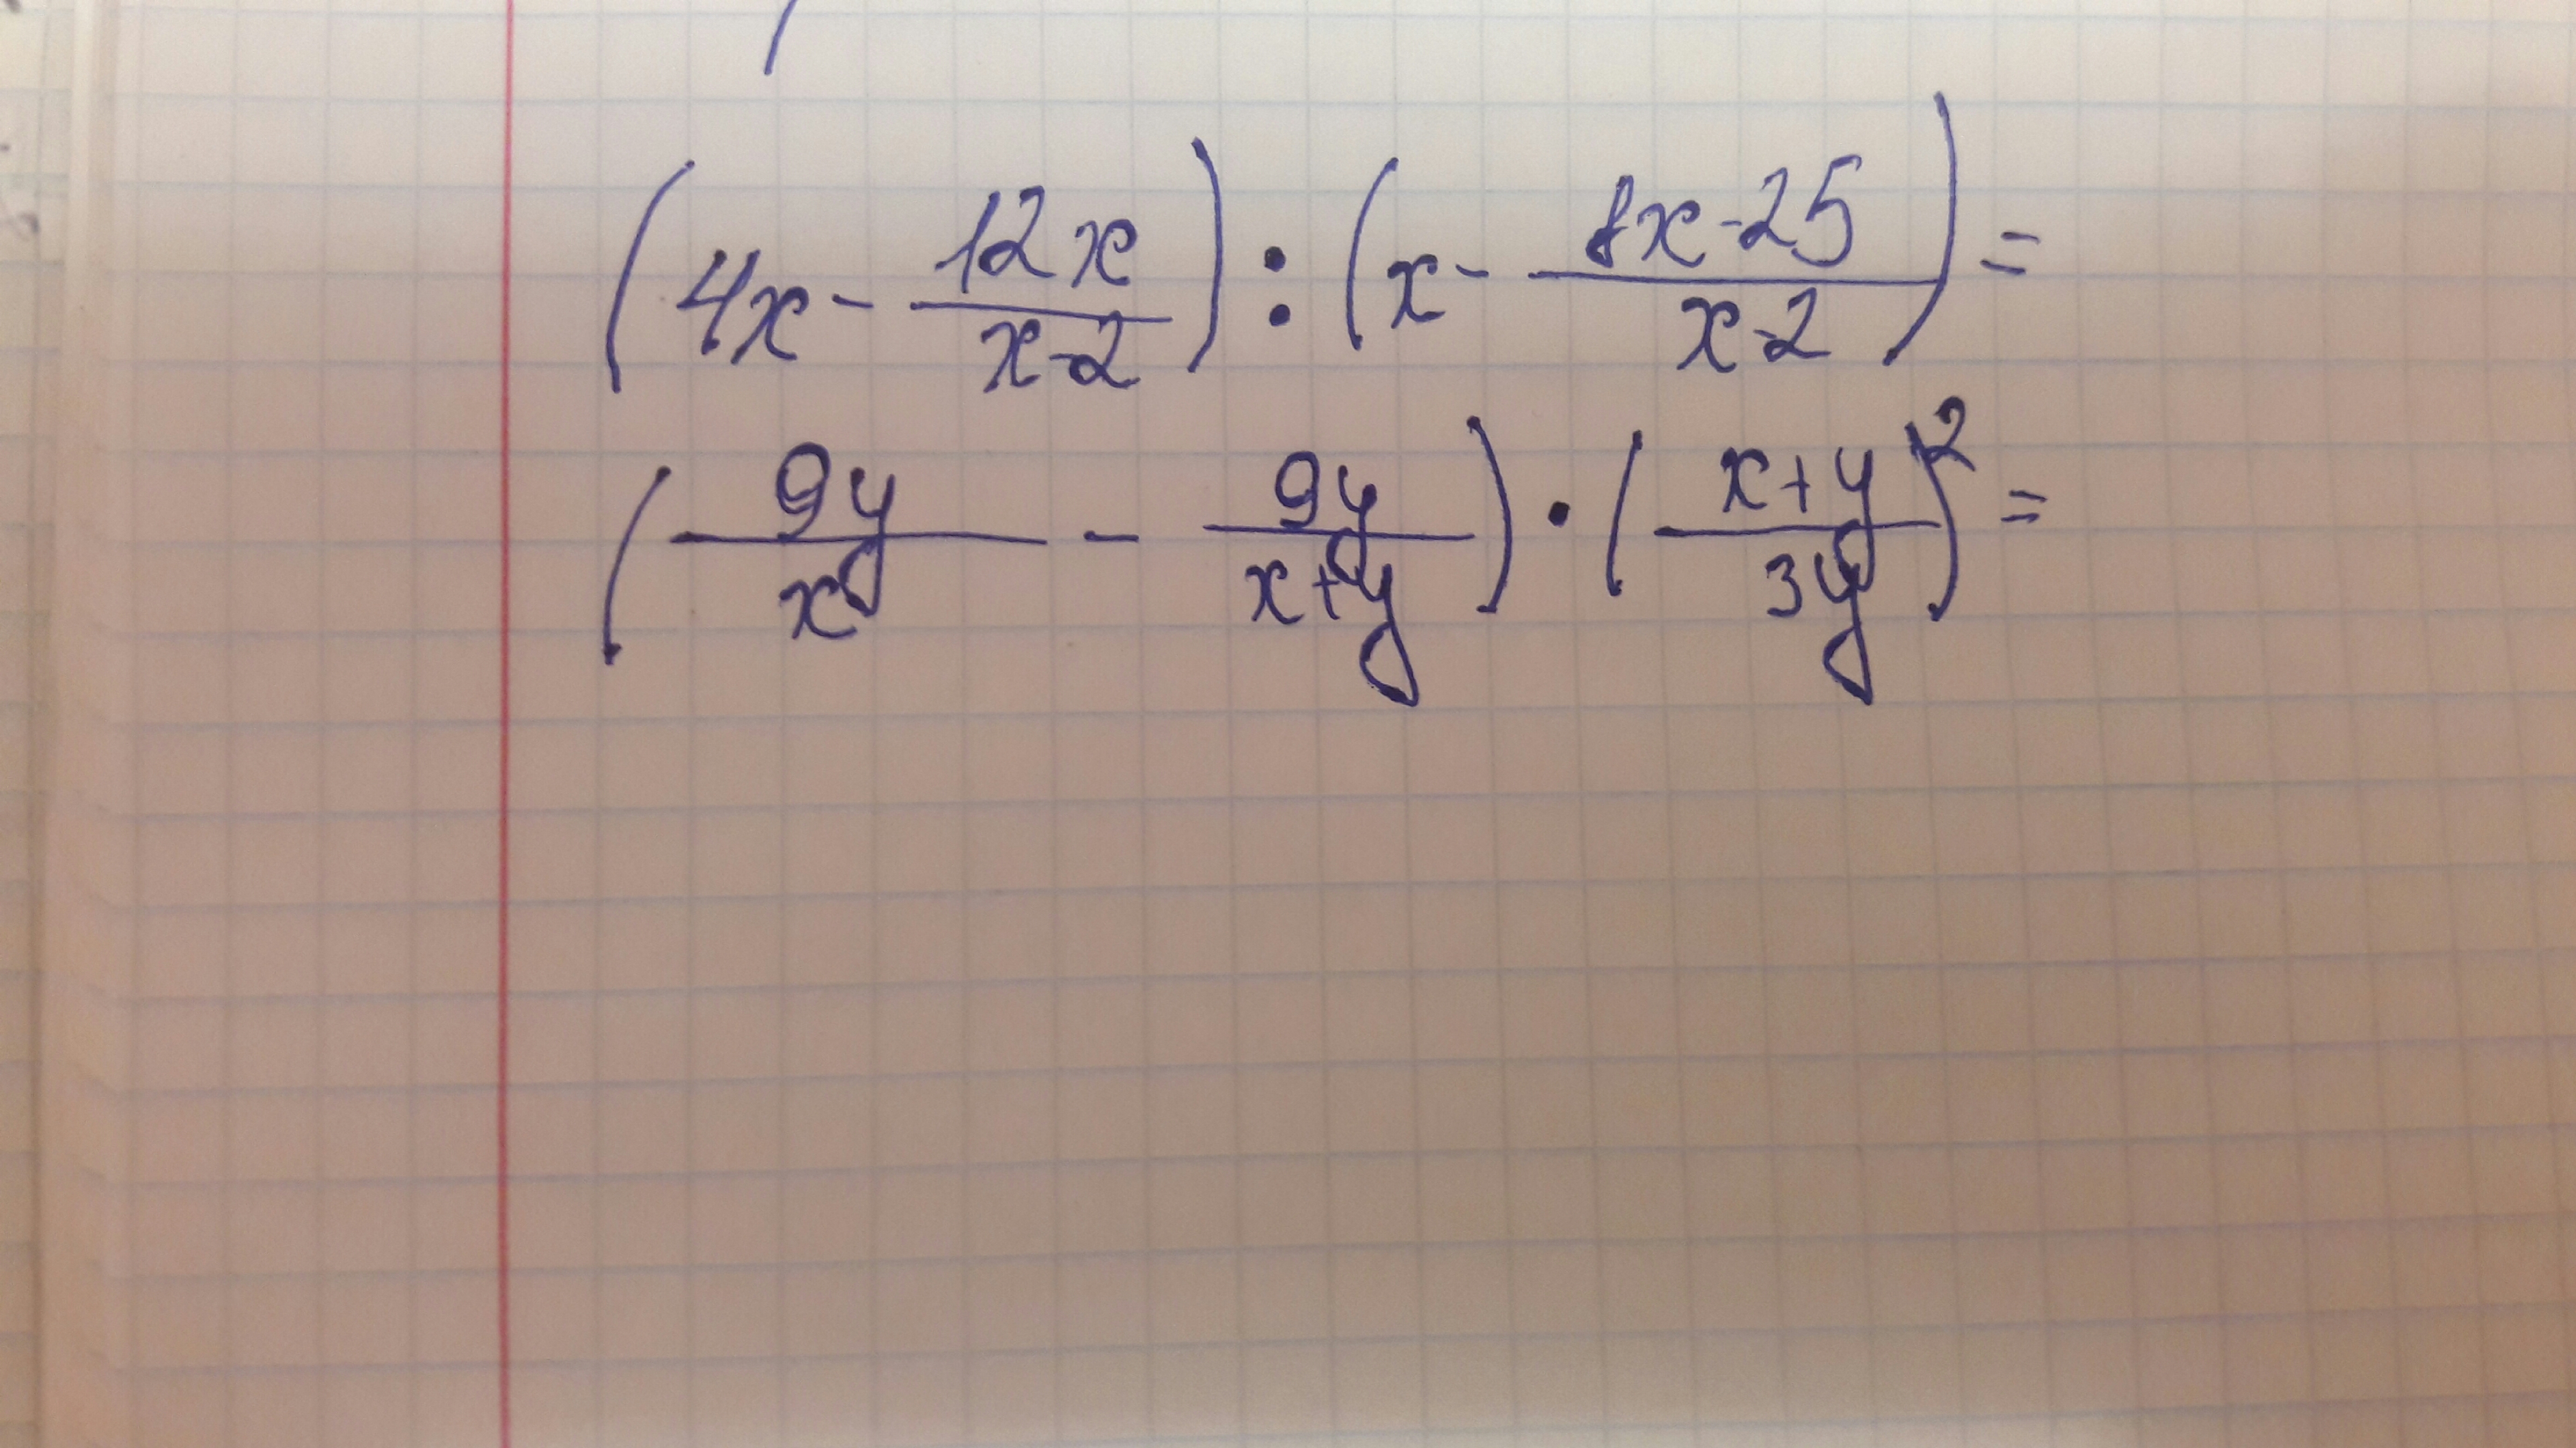 (4x - 12x/(x-2)) : (x - (8x-25)/(x-2)) =
(9y/x - 9y/(x+y)) · ((x+y)/3y)² =